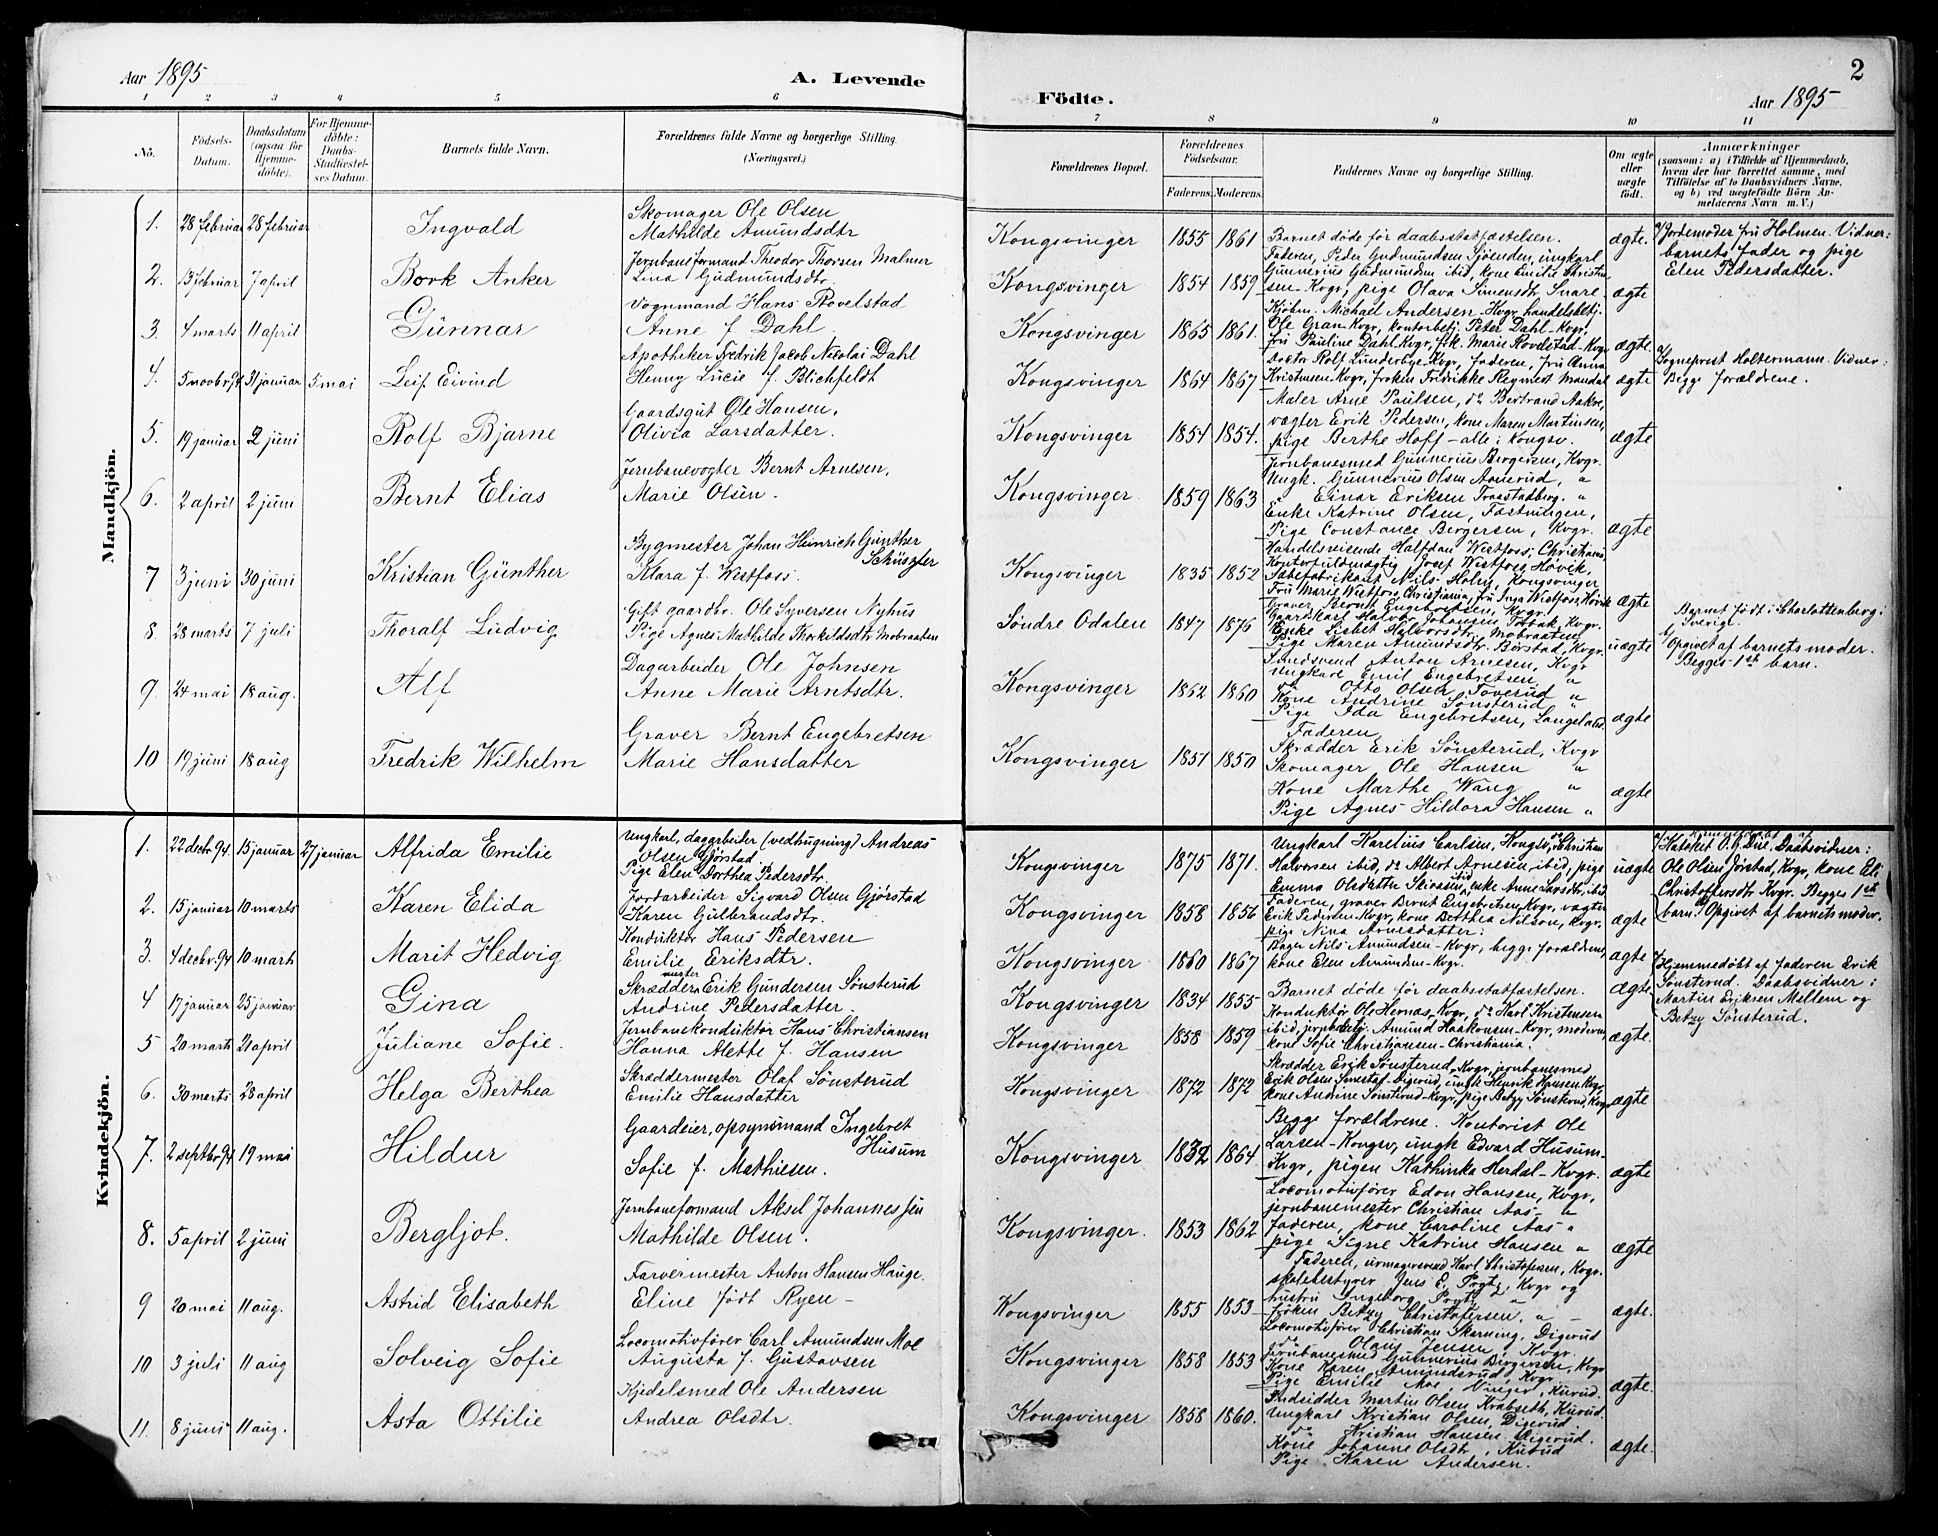 Aar 1895
A. Levende
1 2 3 4 5 6
No.
Födsels-Datum.
Daabsdatum (ogsaa for Hjemme-döbte).
For Hjemme-döbte: Daabs-Stadfæstel-ses Datum.
Barnets fulde Navn.
Forældrenes fulde Navne og borgerlige Stilling. (Næringsvei.)
Mandkjön.
1. 28 februar 28 februar Ingvald Skomager Ole Olsen
Mathilde Amundsdtr
2. 13 februar 7 april Bork Anker Jernbaneformand Theodor Thorsen Malmer
Lina Gudmundsdtr.
3. 4 marts 11 april Gunnar Vognmand Hans Rovelstad
Anne f. Dahl.
4. 5 novbr 94 31 januar 5 mai Leif Eivind Apotheker Fredrik Jacob Nicolai Dahl
Henny Lucie f. Blichfeldt
5. 19 januar 2 juni Rolf Bjarne Gaardsgut Ole Hansen,
Olivia Larsdatter.
6. 2 april 2 juni Bernt Elias Jernbanevogter Bernt Arnesen,
Marie Olsen.
7 3 juni 30 juni Kristian Günther Bygmester Johan Heinrich Günther Schüszler
Klara f. Westfoss.
8. 28 marts 7 juli Thoralf Ludvig Gift gaardbr. Ole Syversen Nyhus
Pige Agnes Mathilde Thorkildsdtr Mobraaten
9. 24 mai 18 aug. Alf Dagarbeider Ole Johnsen
Anne Marie Arntsdtr.
10 19 juni 18 aug Fredrik Wilhelm Graver Bernt Engebretsen
Marie Hansdatter
Kvindekjön.
1. 22 decbr. 94 15 januar 27 januar Alfrida Emilie Ungkarl, daggarbeider (vedhugning) Andreas
Olsen Gjørstad.
Pige Elen Dorthea Pedersdtr.
2. 15 januar 10 marts Karen Elida Jordarbeider Sigvard Olsen Gjørstad
Karen Gulbrandsdtr.
3. 4 decbr. 94 10 marts Marit Hedvig Konduktör Hans Pedersen
Emilie Eriksdtr.
4 17 januar 25 januar Gina Skræddermester Erik Gundersen Sønsterud
Andrine Pedersdatter.
5 20 marts 21 april Juliane Sofie. Jernbanekonduktör Hans Christiansen
Hanna Alette f. Hansen
6. 30 marts 28 april Helga Berthea Skræddermester Olaf Sønsterud
Emilie Hansdatter
7. 2 septbr. 94 19 mai Hildur Gaardeier, opsynsmand Ingebret Husum
Sofie f. Mathiesen.
8. 5 april 2 juni Bergljot. Jernbaneformand Aksel Johannessen
Mathilde Olsen.
9 20 mai 11 aug. Astrid Elisabeth Farvermester Anton Hansen Hauge.
Eline født Ryen -
10 3 juli 11 aug Solveig Sofie Locomotivfører Carl Amundsen Moe
Augusta f. Gustavsen
11. 8 juni 11 aug. Asta Ottilie Kjedelsmed Ole Andersen
Andrea Olsdtr.
Födte.
2
Aar 1895
7 8 9 10 11
Forældrenes Bopæl.
Forældrenes Födselsaar.
Faderens. Moderens.
Faddernes Navne og borgerlige Stilling.
Om ægte eller uægte födt.
Anmærkninger
(saasom: a) i Tilfælde af Hjemmedaab, hvem der har forrettet samme, med Tilföielse af to Daabsvidners Navne, og b) ved uægtefödte Börn Anmelderens Navn m. V.)
Kongsvinger 1855 1861 Barnet døde før daabsstatfæstelsen. ægte. Jordemoder fru Holmen. Vidner:
barnets fader og pige
Elen Pedersdatter.
Kongsvinger 1854 1859 Faderen, Peder Gudmundsen Sjøenden, ungkarl
Gunnerius Gudmundsen ibid, kone Emilie Christian-
sen Kvgr, pige Olava Simensdtr. Snare. ægte
Kongsvinger 1865 1861. Kjøbm. Michael Andersen Kvgr, handelsbetj.
Ole Gran-Kvgr, kontorbetj. Peter Dahl-Kvgr,
fru Pauline Dahl Kvgr, frk. Marie Rovelstad-Kvgr ægte.
Kongsvinger 1864 1867 Doctor Rolf Lunderbye-Kvgr, faderen, fru Anna
Kristensen Kvgr, frøken Fridrikke Regmest Mandal ægte Sogneprest Holtermann. Vidner:
Begge forældrene.
Kongsvinger 1854 1854. Maler Arne Paulsen, do Bertrand Aakre,
vægter Erik Pedersen, kone Maren Martinsen,
pige Berthe Hoff - alle i Kongsv. ægte
Kongsvinger. 1859 1863 Jernbanesmed Gunnerius Bergersen, Kvgr.
Ungk. Gunnerius Olsen Aamerud, "
" Einar Eriksen Traastadberg. "
Enke Katrine Olsen, Fæstningen,
Pige Constance Bergersen, Kvgr. ægte
Kongsvinger 1835 1852 Handelsreisende Halfdan Westfoss, Christiania,
Kontorfuldmægtig Josef Westfoss, Høvik,
Sæbefabrikant Nils Holm, Kongsvinger
Fru Marie Westfoss Christiania, fru Inga Westfoss, Høvik ægte
Søndre Odalen 1847 1876 Graver Bernt Engebretsen, Kvgr.
Gaardskarl Halvor Johansen Tobak, Kvgr.
Enke Lisbet Halvorsdtr, Mobraaten
Pige Maren Amundsdtr. Børstad, Kvgr. uægte Barnet født i Charlottenberg i
Sverige.
Opgivet af barnets moder.
Begges 1ste barn.
Kongsvinger 1862 1860 Smedsvend Anton Arnesen, Kvgr
Ungkarl Emil Engebretsen, "
do Otto Olsen Toverud "
Kone Andrine Sønsterud "
Pige Ida Engebretsen, Langeland. ægte
Kongsvinger 1851 1850 Faderen
Skrædder Erik Sønsterud, Kvgr
Skomager Ole Hansen "
Kone Marthe Wang "
Pige Agnes Hildora Hansen " ægte
Kongsvinger 1875 1871. Ungkarl Karelius Carlsen, Kongsv, do Christian
Halvorsen ibid, do Albert Arnesen, ibid, pige
Emma Olsdatter ibid, enke Anne Larsdtr, ibid uægte Hjemmedøbt af
O. G. Due. Daabsvidner:
Ole Olsen Jørstad, Kvgr, kone Eli
Christoffersdtr. Kvgr. Begges 1ste
barn. Opgivet af barnets moder.
Kongsvinger 1858 1856 Faderen, graver Bernt Engebretsen, Kvgr, vægter
Erik Pedersen-Kvgr, kone Berthea Nilson, Kvgr,
pige Nina Arnesdatter. ægte
Kongsvinger 1860 1867 Bager Nils Amundsen-Kvgr, begge forældrene,
kone Elen Amundsen-Kvgr. ægte
Kongsvinger 1834 1855 Barnet døde før daabsstatfæstelsen. ægte Hjemmedøbt af faderen Erik
Sønsterud. Daabsvidner:
Martin Eriksen Mellem og
Betzy Sønsterud.
Kongsvinger 1858 1859 Konduktør Ole Hernæs, Kvgr, do Karl Kristensen
ibid, jernbetj. Amund Haakonsen-Kvgr, moderen,
kone Sofie Christiansen-Christiania. ægte.
Kongsvinger 1872 1872 Skrædder Erik Sønsterud, Kvgr, jernbanesmed
Erik Olsen Smestad-Digerud, ungk Henrik Hansen Kvgr,
kone Andrine Sønsterud-Kvgr, pige Betzy Sønsterud, Kvgr ægte
Kongsvinger 1832 1864 Begge forældrene. Kontorist Ole
Larsen-Kongsv, ungk Edvard Husum-
Kvgr, pigen Kathinka Herdal-Kvgr. ægte
Kongsvinger. 1853 1862 Locomotivfører Edon Hansen, Kvgr,
jernbanemester Christian Aas- "
Faderen, kone Caroline Aas- "
pige Signe Katrine Hansen " ægte
Kongsvinger 1855 1853 Faderen, urmagersvend Karl Christofersen, Kvgr.
skolebestyrer Jens E. Prytz, Kvgr og
hustru Ingeborg Prytz "
Frøken Betzy Christofersen, " ægte.
Kongsvinger 1858 1853 Locomotivfører Christian Skarning, Digerud
do Olaus Jensen, Kvgr.
Jernbanesmed Gunnerius Bergersen, Kvgr
Kone Karen Amundsrud, Kvgr.
Pige Emilie Moe Vinger, Kurud. ægte.
Kongsvinger 1858 1860. Indsidder Martin Olsen Krabseth, Kurud.
Ungkarl Kristian Olsen, Digerud.
do Kristian Hansen Digerud.
Kone Johanne Olsdtr, Kurud
Pige Karen Andersen. ægte.